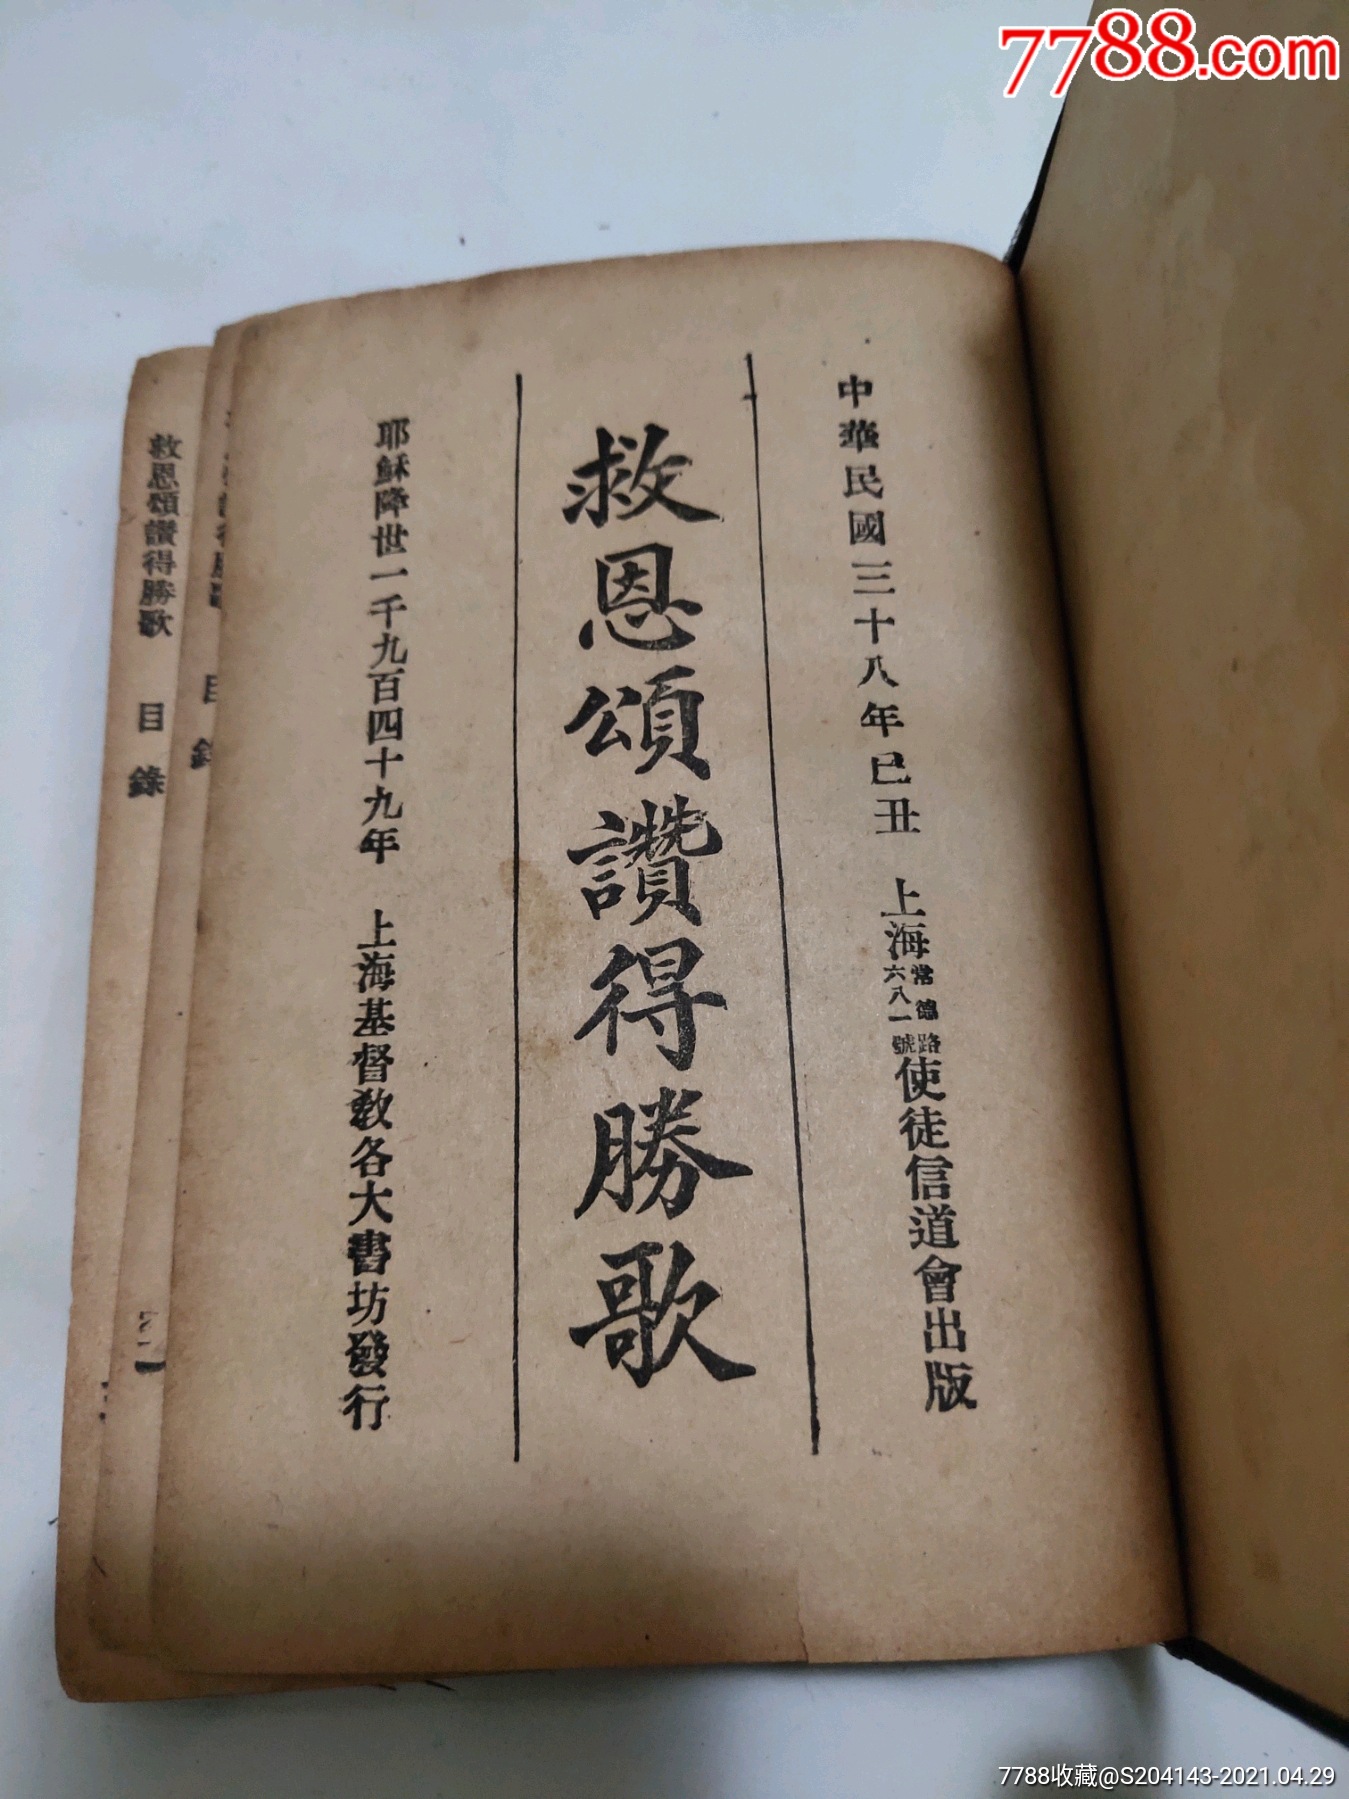 7788.com
中華民國三十八年己丑 上海常德路六八一號使徒信道會出版
救恩頌讚得勝歌
耶穌降世一千九百四十九年 上海基督教各大書坊發行
目錄
救恩頌讚得勝歌 目錄
7788收藏@S204143-2021.04.29